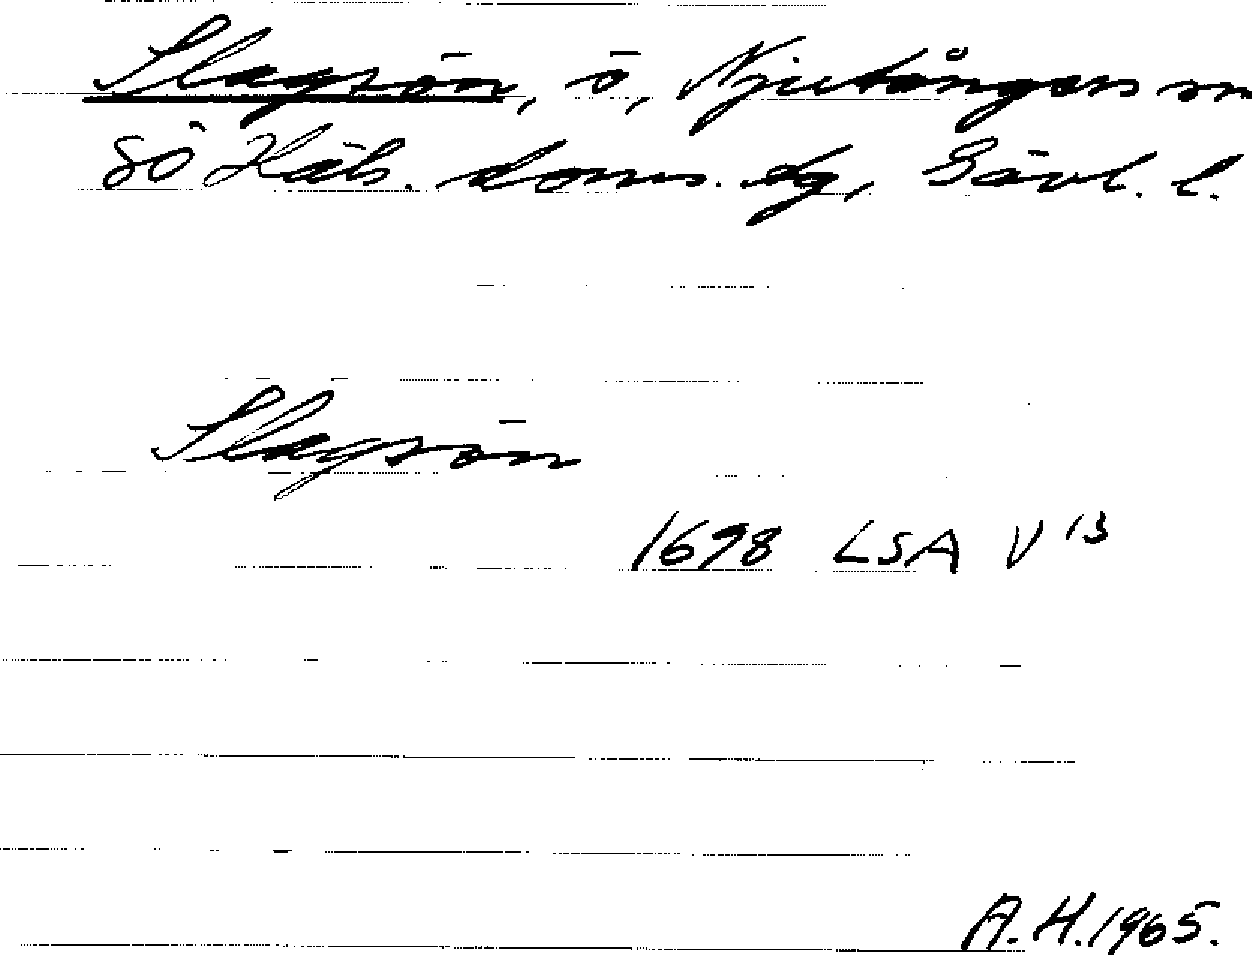 Slagsön, ö, Njutångers sn
SÖ Häls. doms. sg, Gävl. l.
Slagsön
1698 LSA V 13
A.H. 1965.